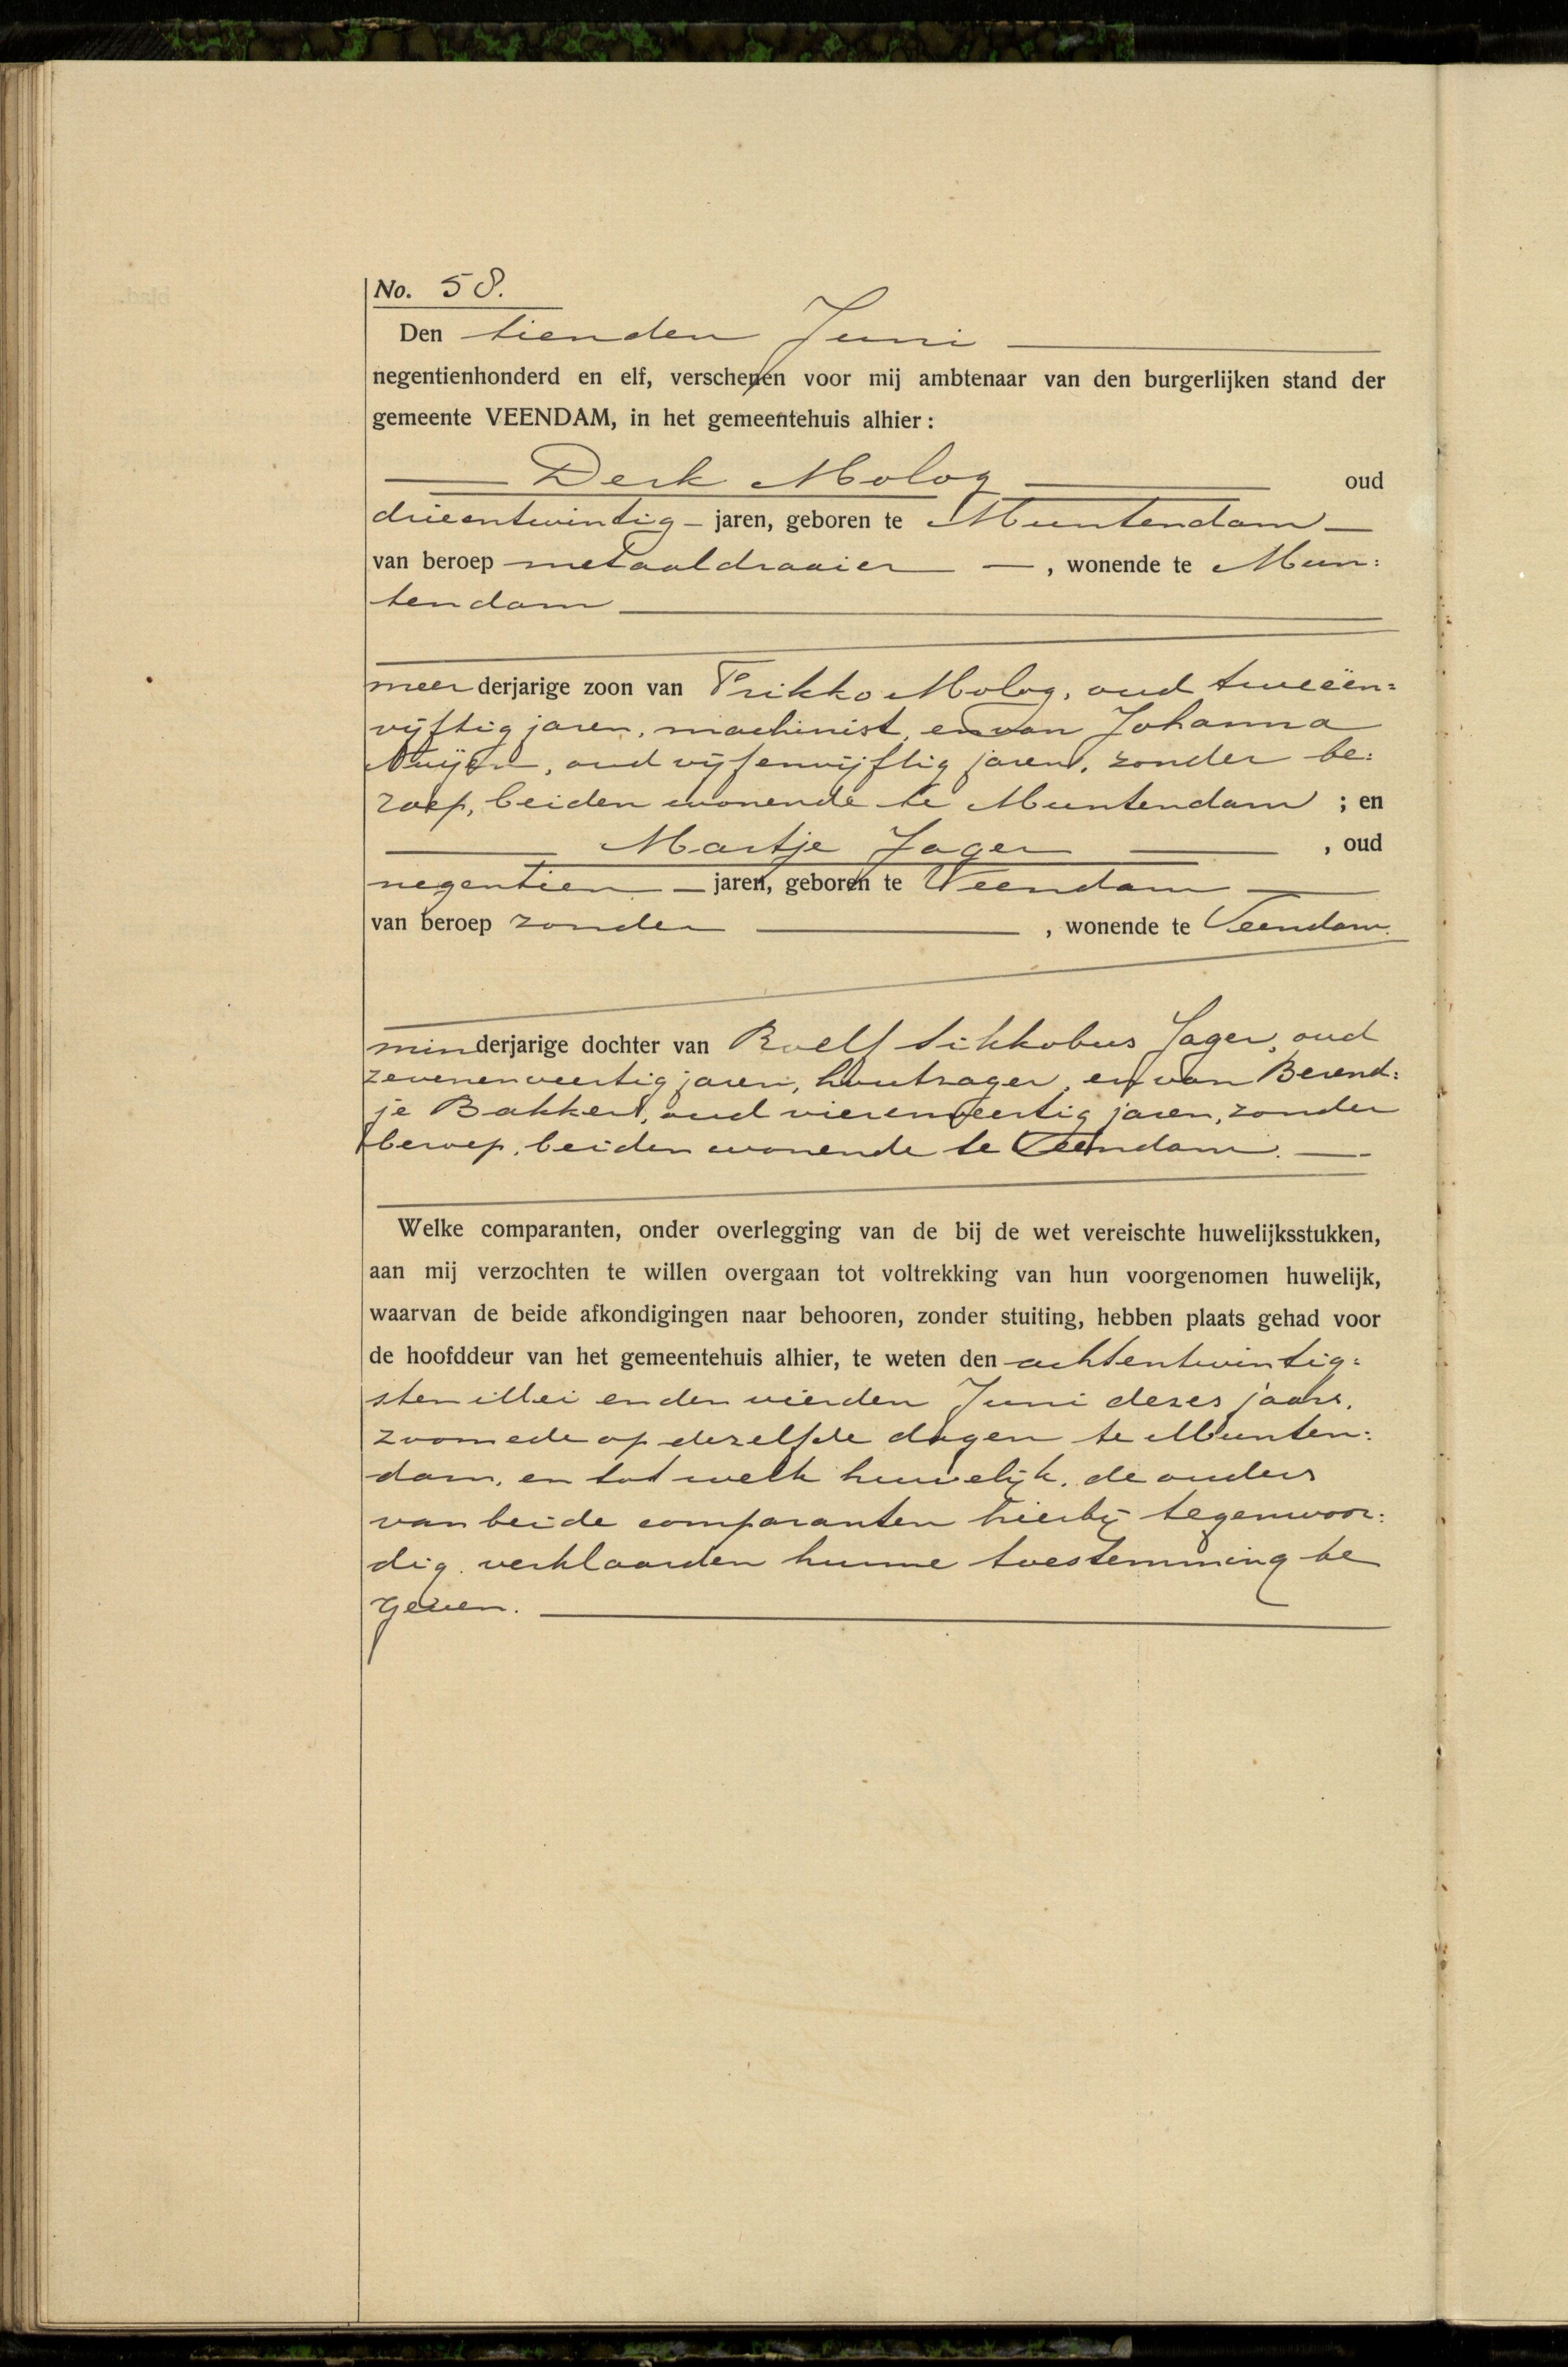 No. 58.
Den tienden Juni
negentienhonderd en elf, verschenen voor mij ambtenaar van den burgerlijken stand der
gemeente VEENDAM, in het gemeentehuis alhier:
Derk Molog oud
drieentwintig jaren, geboren te Muntendam
van beroep metaaldraaier, wonende te Mun:
tendam
meerderjarige zoon van Frikko Molog, oud tweeën=
vijftig jaren, machinist, en van Johanna
oud vijfenvijftig jaren, zonder be:
roep, beiden wonende te Muntendam ; en
Martje Jager, oud
negentien jaren, geboren te Veendam
van beroep zonder, wonende te Veendam.
minderjarige dochter van Roelf Sikkobus Jager, oud
zevenenveertig jaren, houtzager, en van Berend:
je Bakker, oud vierenveertig jaren, zonder
beroep, beiden wonende te Veendam.
Welke comparanten, onder overlegging van de bij de wet vereischte huwelijksstukken,
aan mij verzochten te willen overgaan tot voltrekking van hun voorgenomen huwelijk,
waarvan de beide afkondigingen naar behooren, zonder stuiting, hebben plaats gehad voor
de hoofddeur van het gemeentehuis alhier, te weten den achtentwintig=
sten Mei en den vierden Juni dezes jaars,
zoomede op dezelfde dagen te Munten:
dam, en tot welk huwelijk, de ouders
van beide comparanten hierbij tegenwoor:
dig verklaarden hunne toestemming te
geven.